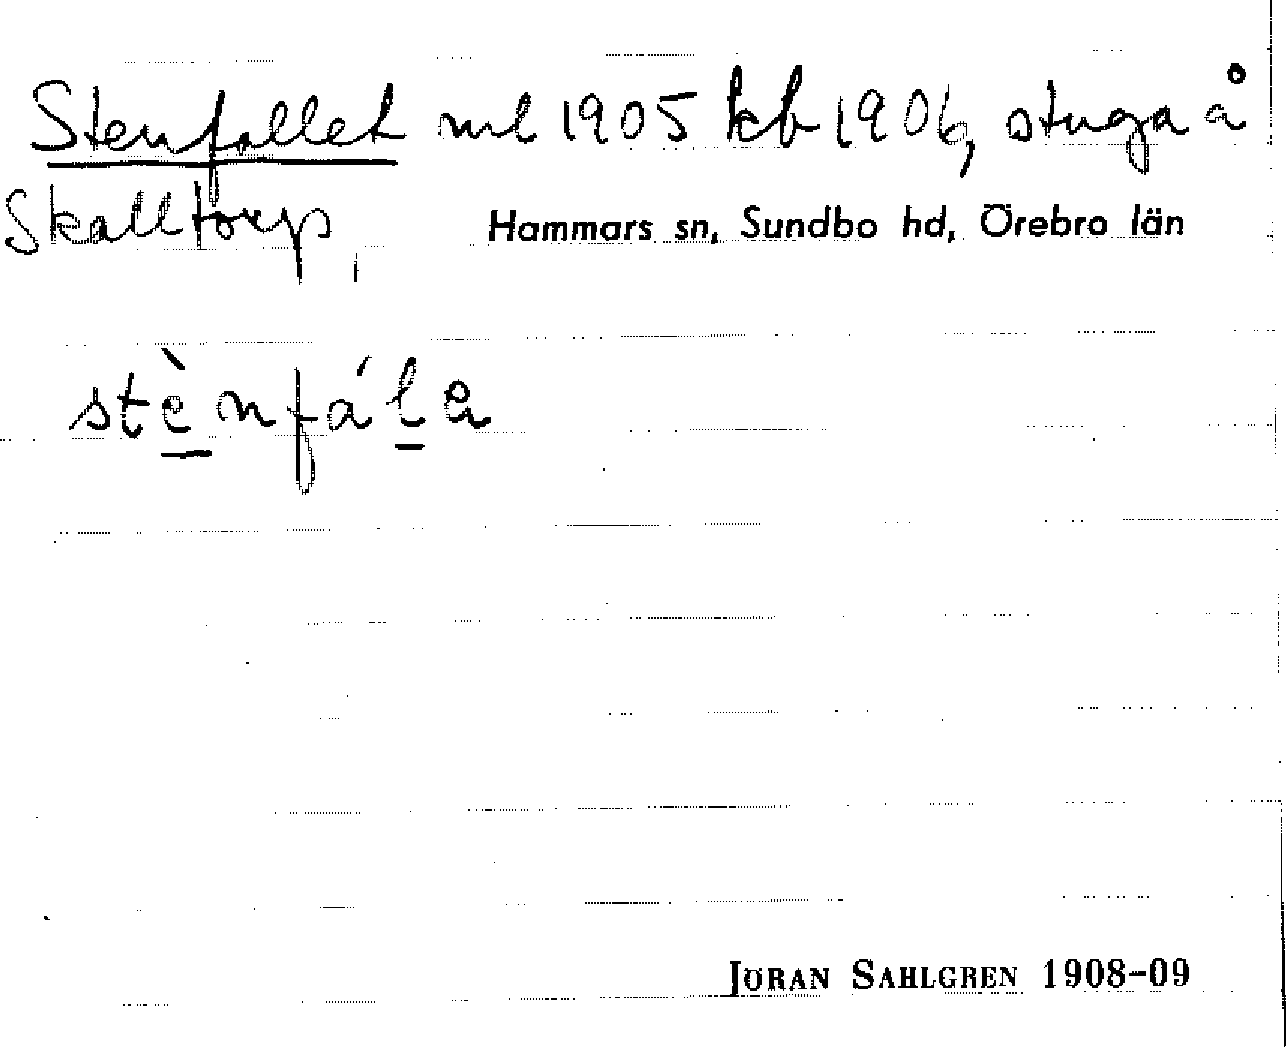 Stenfallet ml 1905 kb 1906, stuga å
Skalltorp, Hammars sn, Sundbo hd, Örebro län
stè̠nfál̠å
JÖRAN SAHLGREN 1908-09